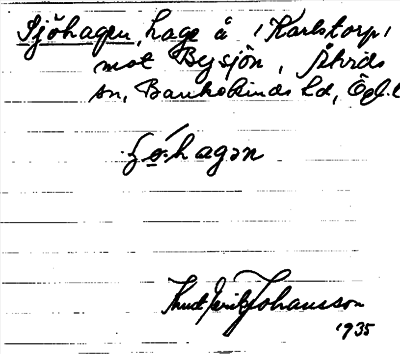 Sjöhagen, hage å Karlstorp,
mot Bysjön, Åtvids
sn, Bankekinds hd, Ögl.
Knut Erik Johansson
1935